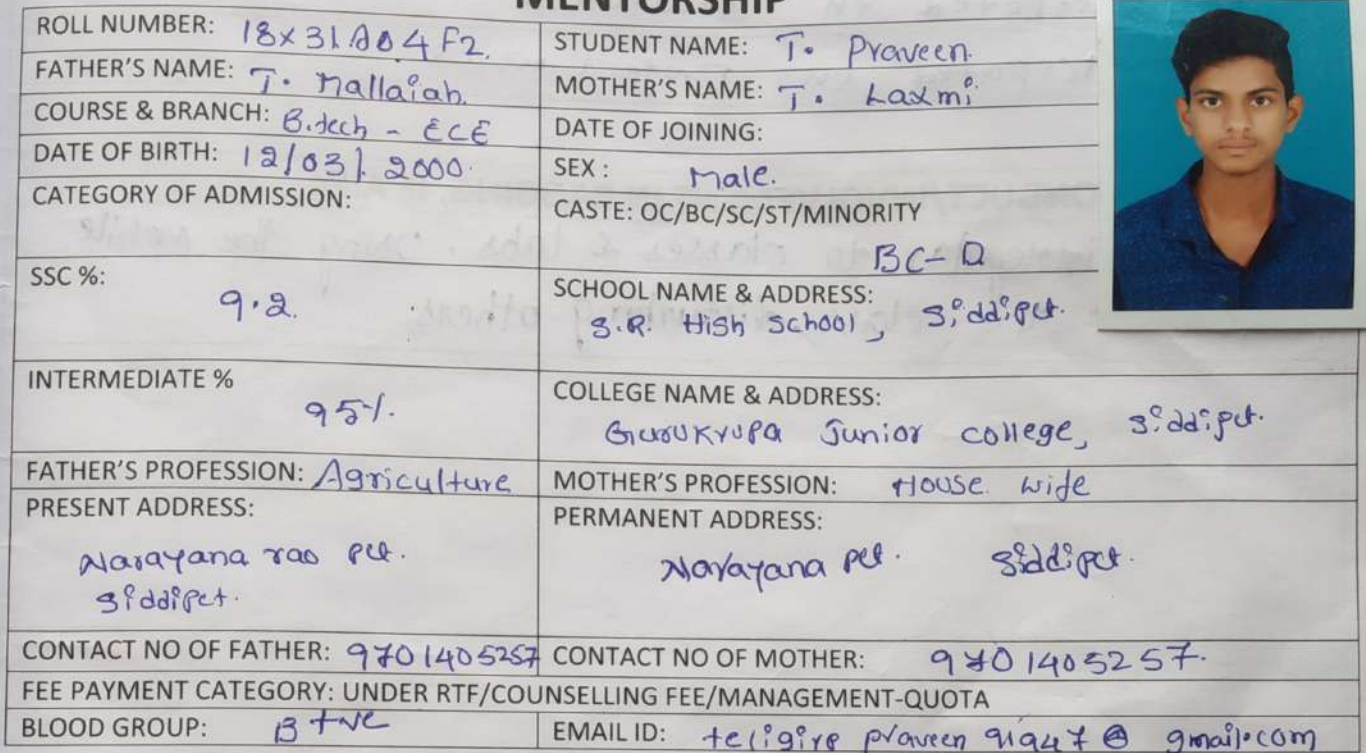 MENTORSHIP
ROLL NUMBER: 18x31A04F2. STUDENT NAME: T. Praveen.
FATHER'S NAME: T. Mallaiah. MOTHER'S NAME: T. Laxmi
COURSE & BRANCH: B.tech - ECE DATE OF JOINING:
DATE OF BIRTH: 12/03/2000. SEX : Male.
CATEGORY OF ADMISSION: CASTE: OC/BC/SC/ST/MINORITY
BC-D
SSC %: SCHOOL NAME & ADDRESS:
9.2. S.R. High School, Siddipet.
INTERMEDIATE % COLLEGE NAME & ADDRESS:
95%. Gurukrupa Junior college, Siddipet.
FATHER'S PROFESSION: Agriculture MOTHER'S PROFESSION: House wife
PRESENT ADDRESS: PERMANENT ADDRESS:
Narayana rao pet. Narayana pet. Siddipet.
Siddipet.
CONTACT NO OF FATHER: 9701405257 CONTACT NO OF MOTHER: 9701405257.
FEE PAYMENT CATEGORY: UNDER RTF/COUNSELLING FEE/MANAGEMENT-QUOTA
BLOOD GROUP: B +ve EMAIL ID: teligire praveen 91947@gmail.com